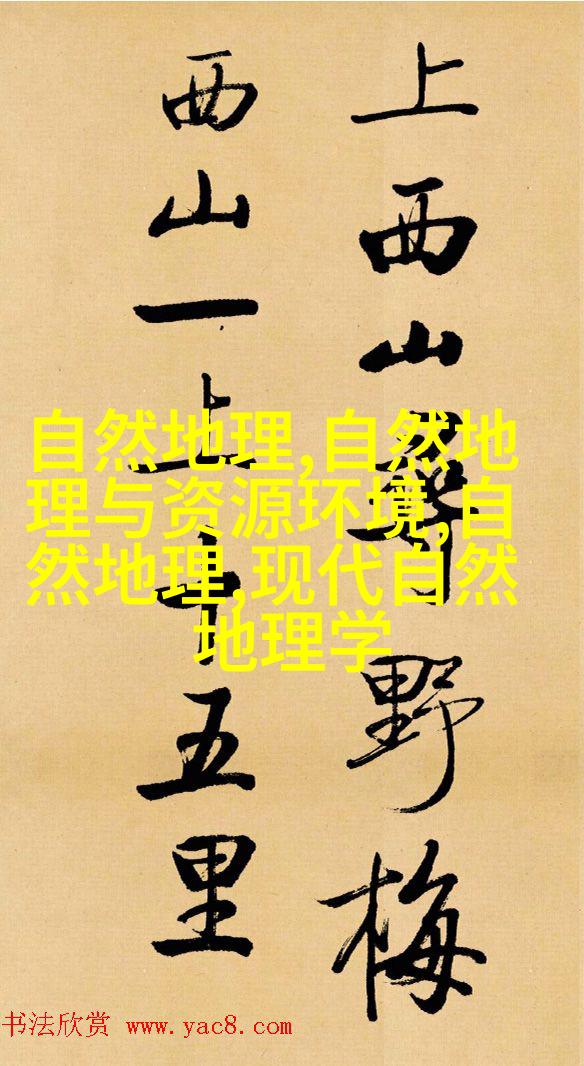 上西山尋野梅
西山一上十五里
自然地理,自然地
理与资源环境,自
然地理,现代自然
地理学
书法欣赏 www.yac8.com